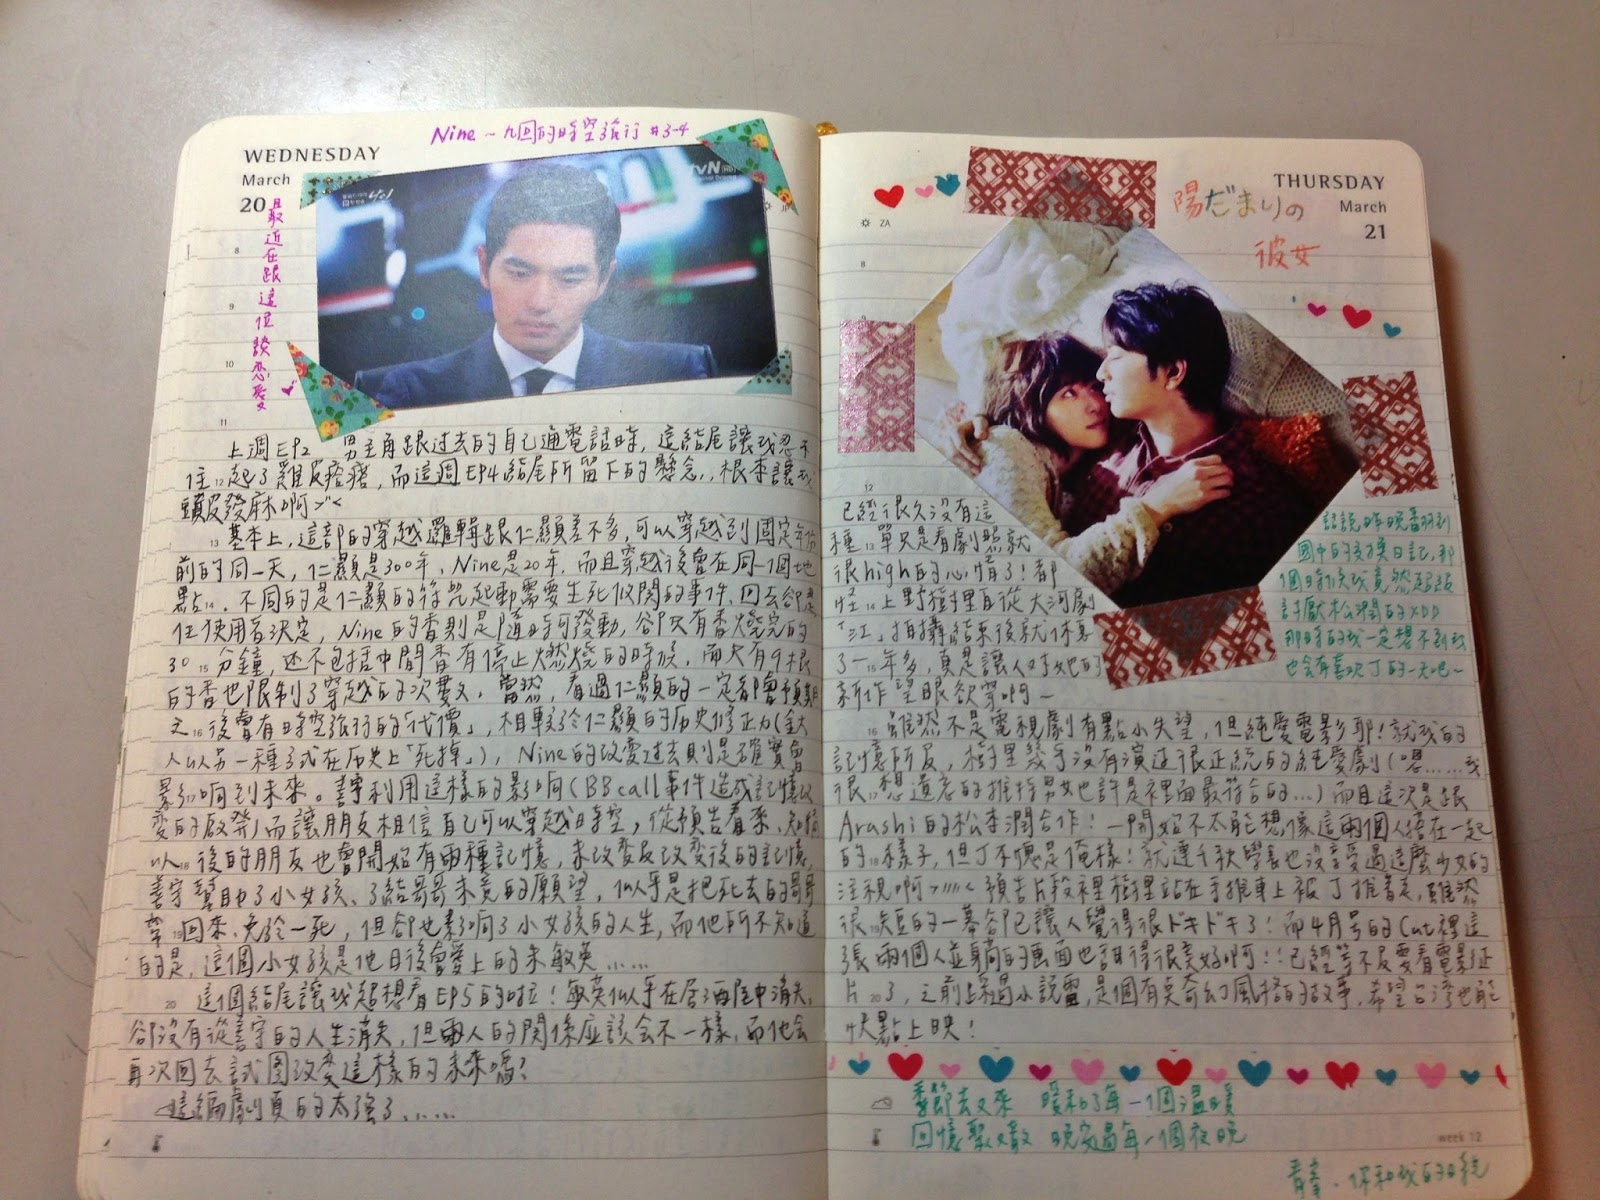 Nine ~ 九回的時空旅行 #3-4
WEDNESDAY
March
20
tvN
最近在跟這位談戀愛
8
9
10
11
上週EP2 男主角跟過去的自己通電話時，這結尾讓我忍不
住12起了雞皮疙瘩，而這週EP4結尾所留下的懸念，根本讓我
頭皮發麻啊><
13 基本上，這部的穿越邏輯跟仁顯差不多，可以穿越到固定年份
前的同一天，仁顯是300年、Nine是20年，而且穿越後會在同一個地
點14。不同的是仁顯的符咒起動需要生死攸關的事件、回去卻是
任使用者決定，Nine的香則是隨時可發動，卻只有香燒完的
30 15 分鐘，還不包括中間香有停止燃燒的時候，而只有9根
的香也限制了穿越的次數。當然，看過仁顯的一定都會預期
之16後會有時空旅行的「代價」，相較於仁顯的歷史修正力(金大
人以另一種方式在歷史上「死掉」)，Nine的改變過去則是確實會
影17響到未來。善宇利用這樣的影響(BBcall事件造成記憶改
變的啟發)而讓朋友相信自己可以穿越時空，從預告看來，知情
以18後的朋友也會開始有兩種記憶，未改變及改變後的記憶，
善宇幫助了小女孩、了結哥哥未竟的願望，似乎是把死去的哥哥
帶19回來、免於一死，但卻也影響了小女孩的人生，而他所不知道
的是，這個小女孩是他日後會愛上的朱敏英……
20 這個結尾讓我超想看EP5的啦！敏英似乎在居酒屋中消失，
卻沒有從善宇的人生消失，但兩人的關係應該會不一樣，而他會
再次回去試圖改變這樣的未來嗎？
這編劇真的太強了……
THURSDAY
March
21
ZA
陽だまりの
彼女
8
9
12
已經很久沒有這
種13單只是看劇照就
很high的心情了！都
怪14上野樹里自從大河劇
「江」拍攝結束後就休息
了一15年多，真是讓人對她的
新作望眼欲穿啊~
話說昨晚番羽到
國中的交換日記，那
個時候我竟然超級
討厭松潤的XDD
那時的我一定想不到我
也會有喜歡丁的一天吧~
16 雖然不是電視劇有點小失望，但純愛電影耶！就我的
記憶所及，樹里幾乎沒有演過很正統的純愛劇(嗯……我
很17想遺忘的推特男女也許是裡面最符合的…)而且這次是跟
Arashi的松本潤合作！一開始不太能想像這兩個人搭在一起
的18樣子，但丁不愧是俺樣！就連千秋學長也沒享受過這麼少女的
注視啊>///< 預告片段裡樹里站在手推車上被丁推著走，雖然
很19短的一幕卻已讓人覺得很ドキドキ了！而4月号的Cut裡這
張兩個人並躺的畫面也訊得很美好啊！！已經等不及要看電影正
片20了，之前上網過小說雷，是個有奇幻風格的故事，希望台灣也能
快點上映！
季節去又來 暖和了每一個溫暖
回憶聚又散 晚安過每一個夜晚
week 12
青峯．你和我的時光